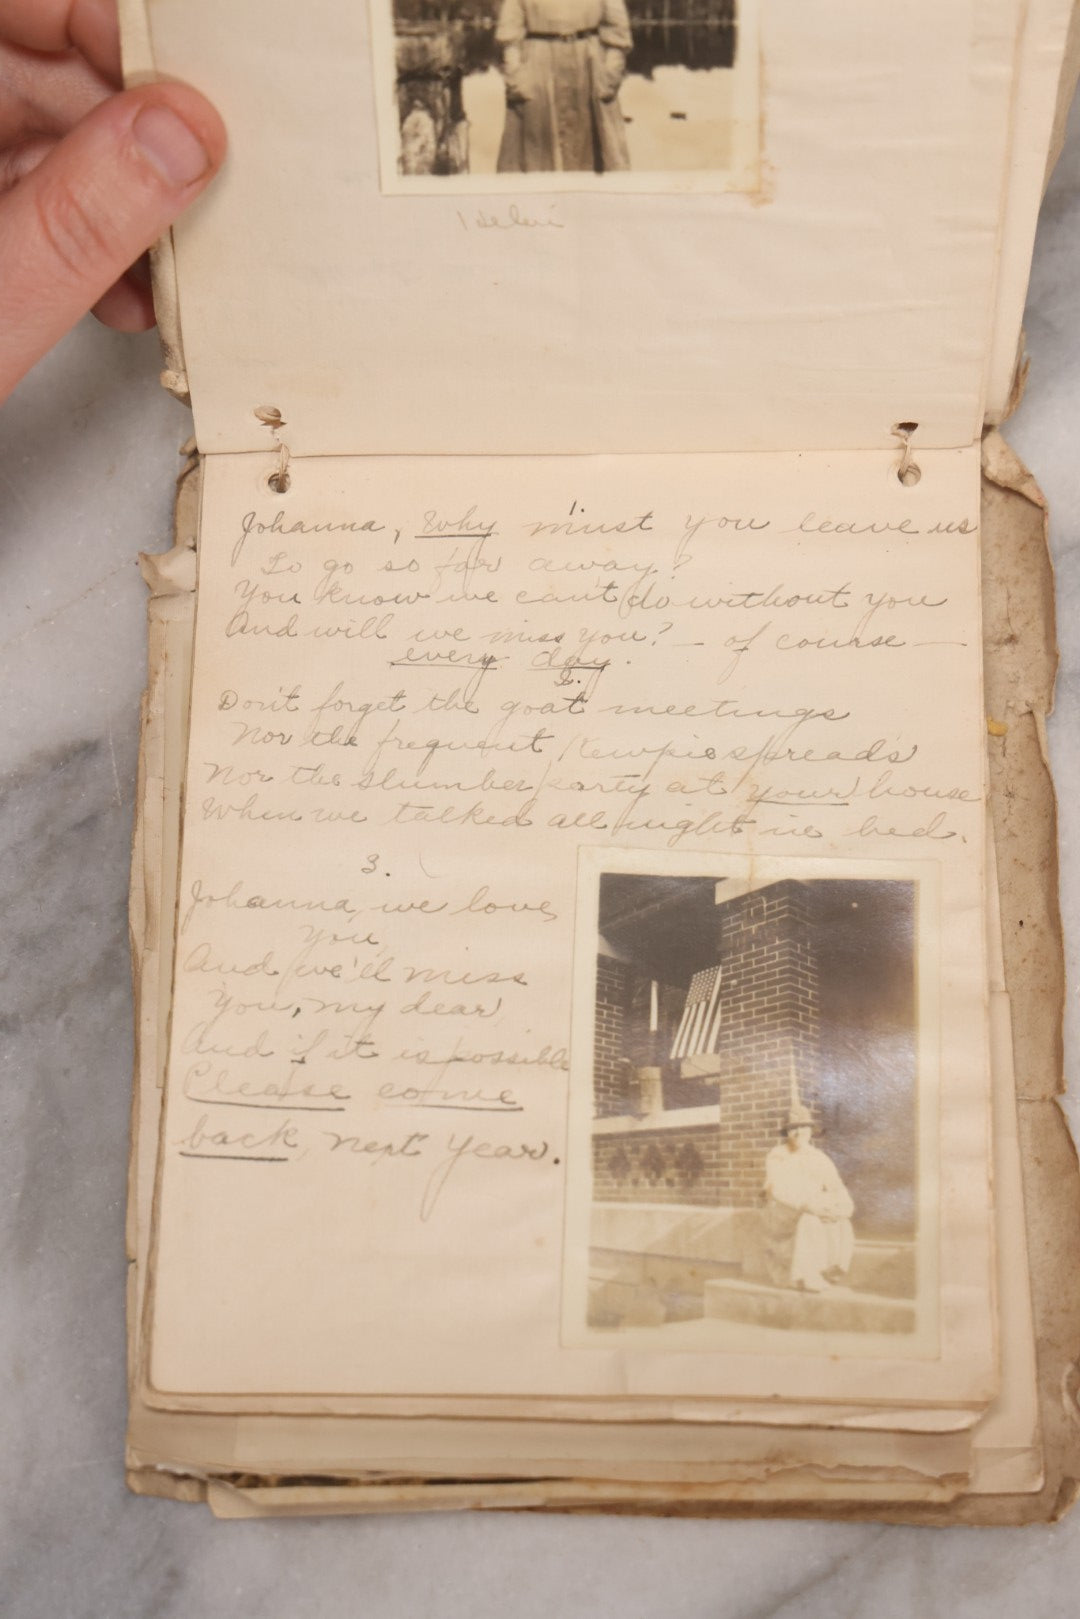 Helen
1.
Johanna, Why must you leave us
To go so far away?
You know we can't do without you
And will we miss you? — of course —
every day.
2.
Don't forget the goat meetings
Nor the frequent Kewpie spreads
Nor the slumber party at your house
When we talked all night in bed.
3.
Johanna, we love
you
And we'll miss
you, my dear
And if it is possible
Please come
back, next year.